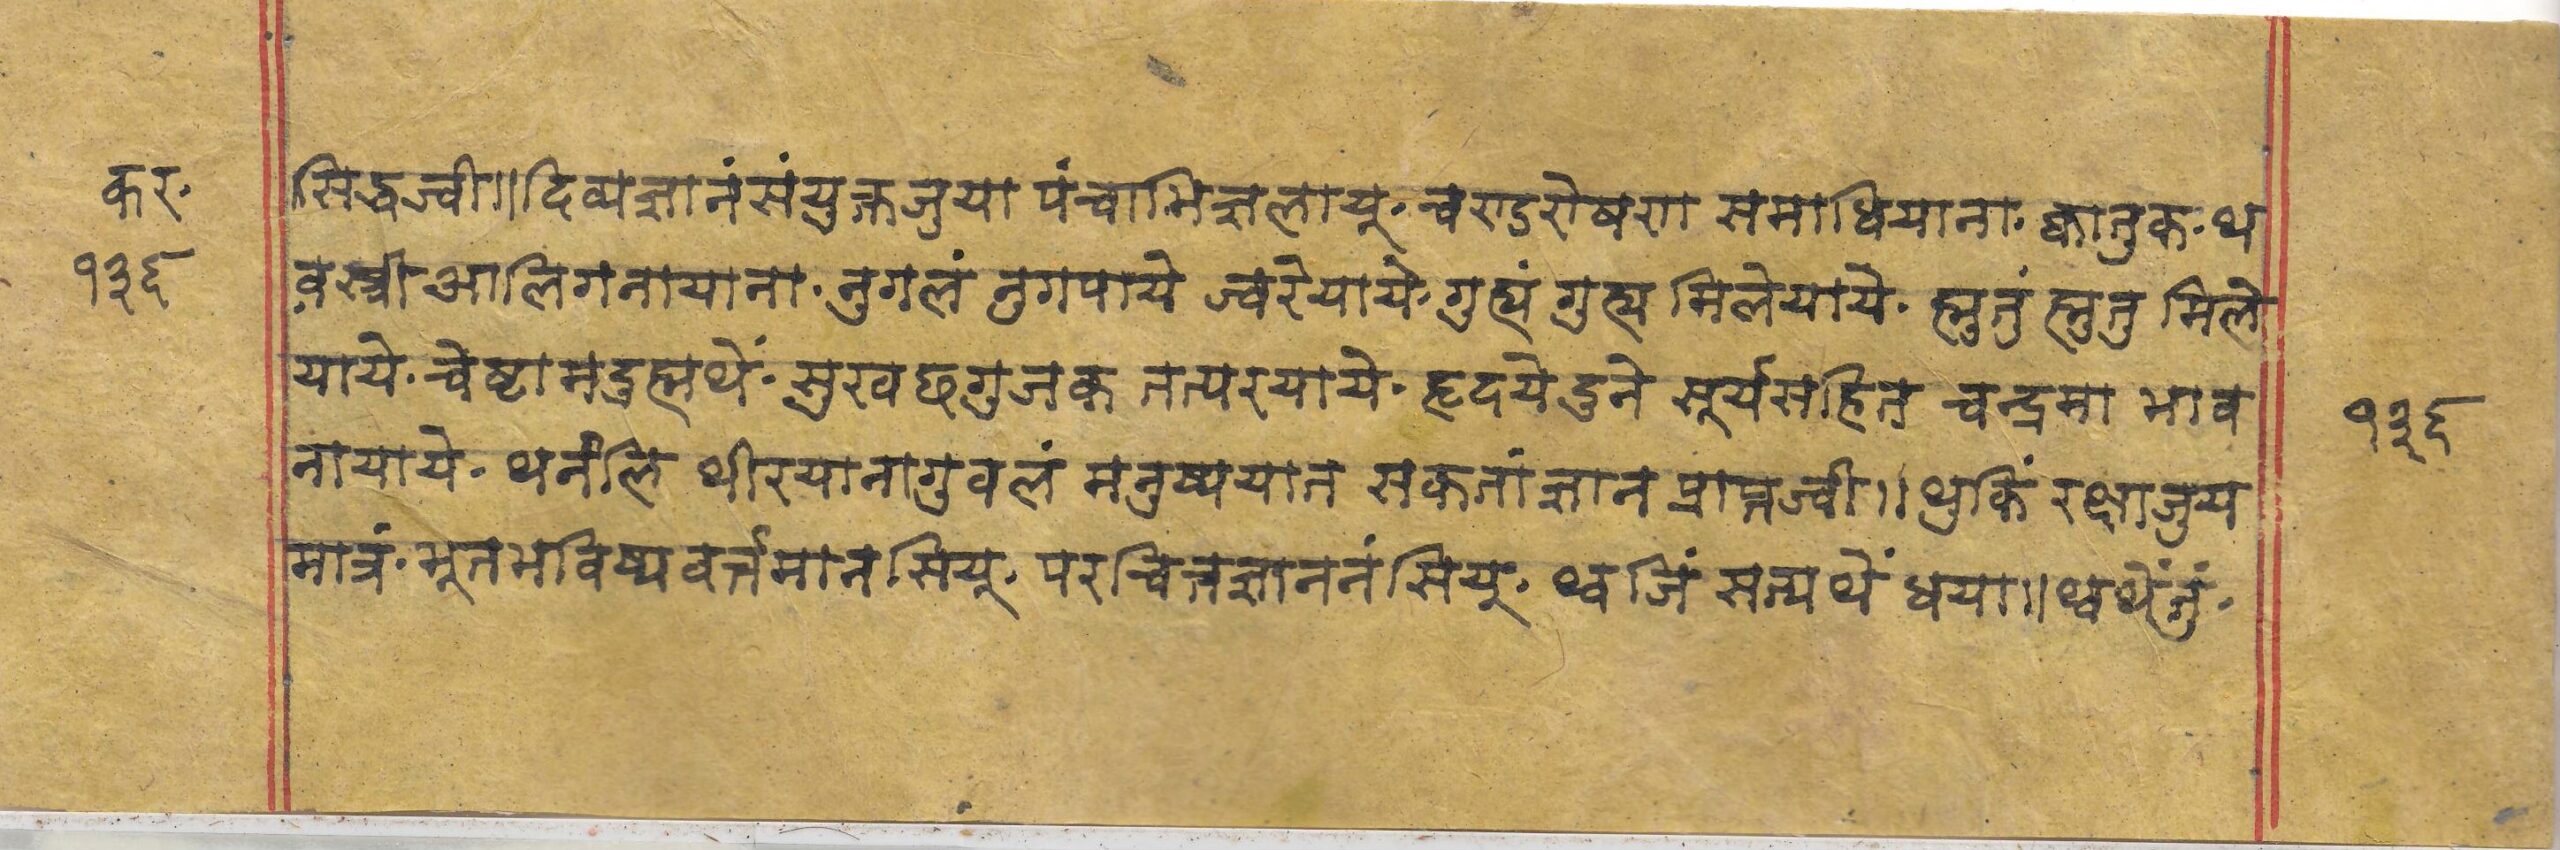 कर·
१३६
सिद्धज्वी॥दिव्यज्ञानंसंयुक्तजुया पंचाभिज्ञलायू· चण्डरोषणा समाधियाना· क्वातुक· थ
वस्त्री आलिगनायाना· नुगलं नुगपाये ज्वरेयाये· गुह्यं गुह्य मिलेयाये· ह्मुतुं ह्मुतु मिले
याये· चेष्टामदुह्मथें· सुखछगुजक तत्परयाये· हृदयेदुने सूर्यसहित चन्द्रमा भाव
नायाये· थनंलि थीरयानागुवलं मनुष्ययात सकतां ज्ञान प्राप्तज्वी॥ थुकिं रक्षाजुय
मात्रं· भूतभविष्यवर्त्तमानसियू· परचित्तज्ञाननं सियू· थ्व जिं सत्यथें धया॥ थ्वथेंतुं·
१३६